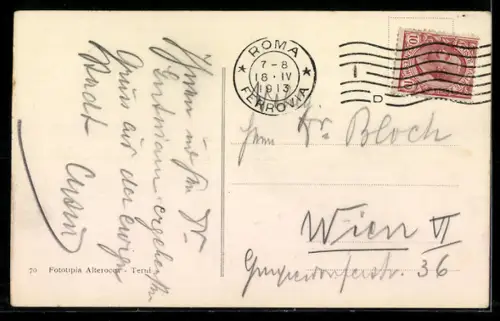 ROMA
7-8
18·IV
1913
FERROVIA
10
D
Ihnen und
Gruss aus der ewigen
Stadt
Herrn Dr. Bloch
Wien VI
Gumpendorferstr. 36
70 Fototipia Alterocca - Terni